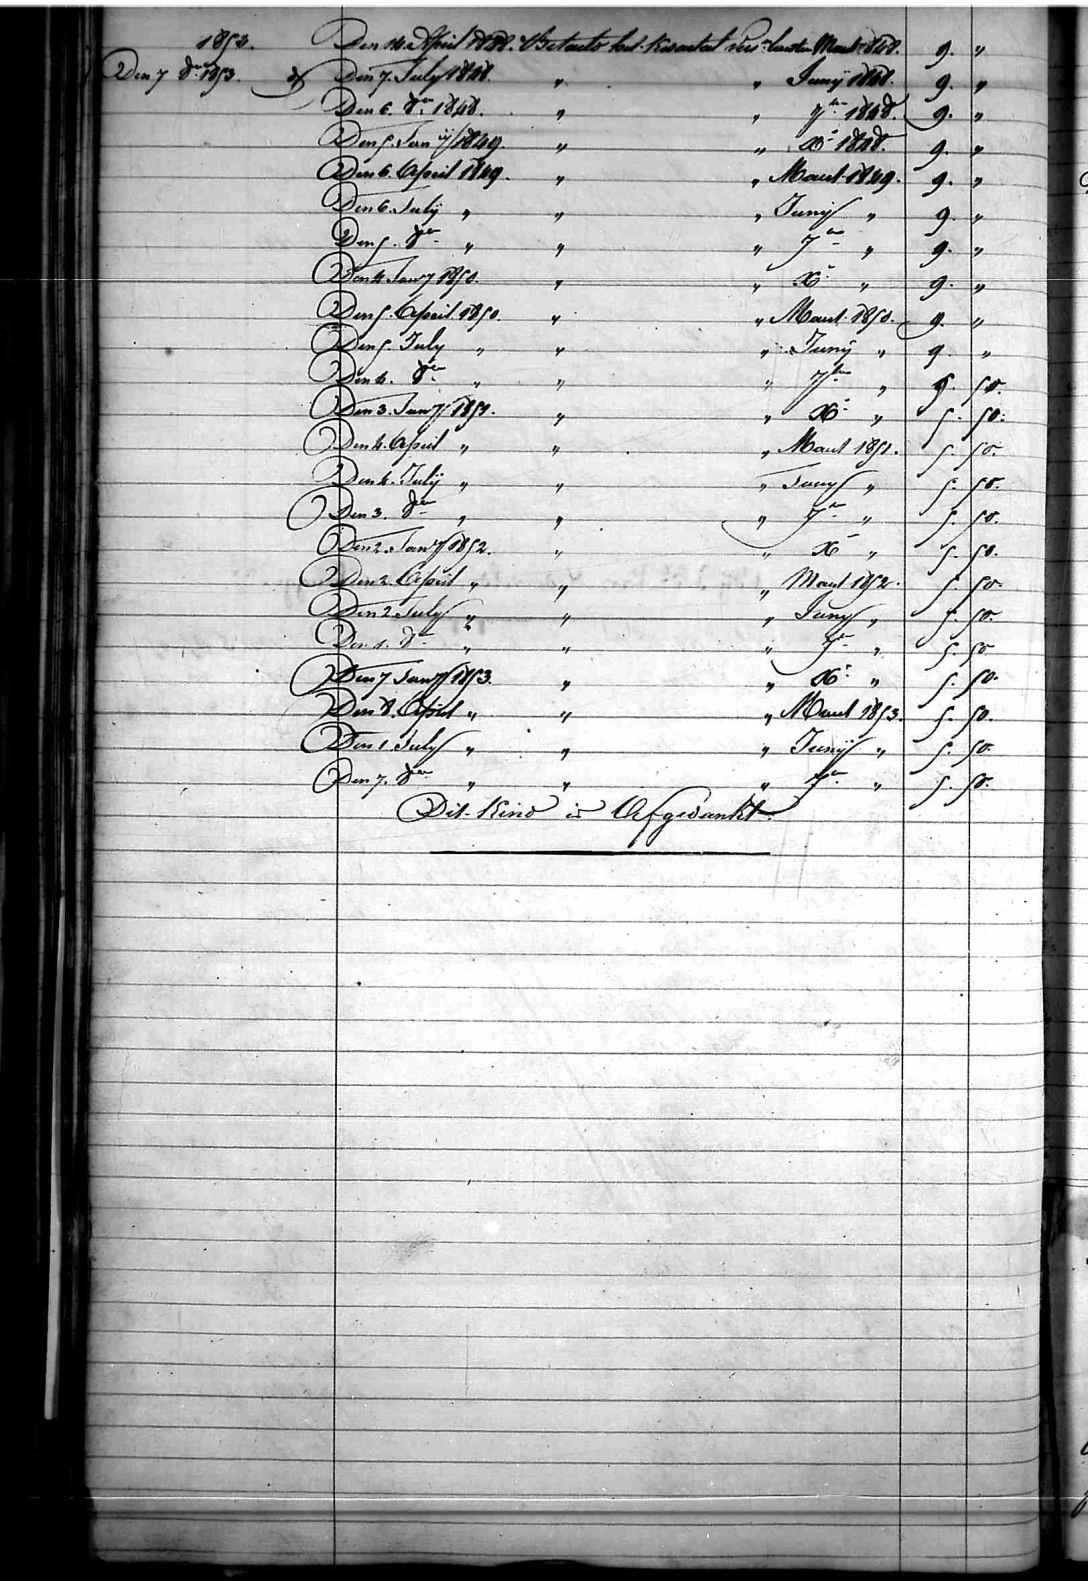 1853. Den 14 April 1848. Betaald het Kwartaal verschenen Maart 1848. 9. "
Den 7 8er 1853. Den 7. July 1848. " " Junij 1848. 9. "
Den 6. 8er 1848. " 7ber 1848. 9. "
Den 5. Janij 1849. " " Xr 1848. 9. "
Den 6. April 1849. " " Maart 1849. 9. "
Den 6. July " " " Junij " 9. "
Den 5. 8er " " " 7er " 9. "
Den 4. Jany 1850. " " Xr " 9. "
Den 5. April 1850. " " Maart 1850. 9. "
Den 5. July " " " Junij " 9. "
Den 4. 8er " " " 7ber " 5. 50.
Den 3. Jany 1851. " " Xr " 5. 50.
Den 4. April " " " Maart 1851. 5. 50.
Den 4. July " " " Juny " 5. 50.
Den 3. 8er " " " 7er " 5. 50.
Den 2. Jany 1852. " " Xr " 5. 50.
Den 2. April " " " Maart 1852. 5. 50.
Den 2. July " " " Juny " 5. 50.
Den 1. 8er " " " 7er " 5. 50.
Den 7 Jany 1853. " " Xr " 5. 50.
Den 8. April " " " Maart 1853. 5. 50.
Den 1. July " " " Junij " 5. 50.
Den 7. 8er " " " 7er " 5. 50.
Dit Kind is Afgedankt.